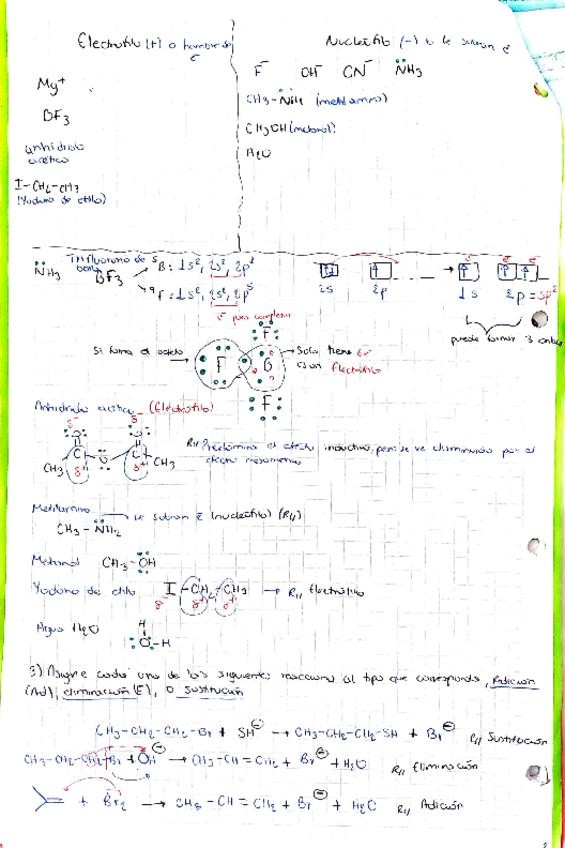 Electrofilo (+) o hambre de e⁻
Nucleofilo (-) o le sobran e⁻
Mg⁺
BF3
anhidrido acético
I-CH2-CH3
(Yoduro de etilo)
F⁻ OH⁻ CN⁻ N̈H3
CH3-N̈H2 (metilamino)
CH3OH (metanol)
H2O
N̈H3
Trifluoruro de boro
BF3
⁵B: 1s², 2s², 2p¹
⁹F: 1s², 2s², 2p⁵
2s 2p
e⁻ e⁻ e⁻
1s 2p = sp²
puede formar 3 enlaces
e⁻ para completar
F
Si forma el octeto
F B
Solo tiene 6e⁻
es un Electrofilo
F
Anhidrido acético (Electrofilo)
δ⁻ δ⁻
O O
C O C
CH3 δ⁺ δ⁺ CH3
R// Predomina el efecto inductivo, pero se ve disminuido por el
efecto mesomerico
Metilamino
CH3-N̈H2
le sobran e⁻ (nucleofilo) (R//)
Methanol CH3-OH
Yoduro de etilo I-CH2-CH3 → R// Electrofilico
δ⁻ δ⁺ δ⁺
Agua H2O
H
O-H
3) Asigne cada uno de las siguientes reacciones al tipo que corresponda, Adicion
(Ad), eliminación (E), o sustitución
CH3-CH2-CH2-Br + SH⊖ → CH3-CH2-CH2-SH + Br⊖ R// Sustitución
CH3-CH2-CH2-Br + OH⊖ → CH3-CH=CH2 + Br⊖ + H2O R// Eliminación
+ Br2 → CH3-CH=CH2 + Br⊖ + H2C R// Adición